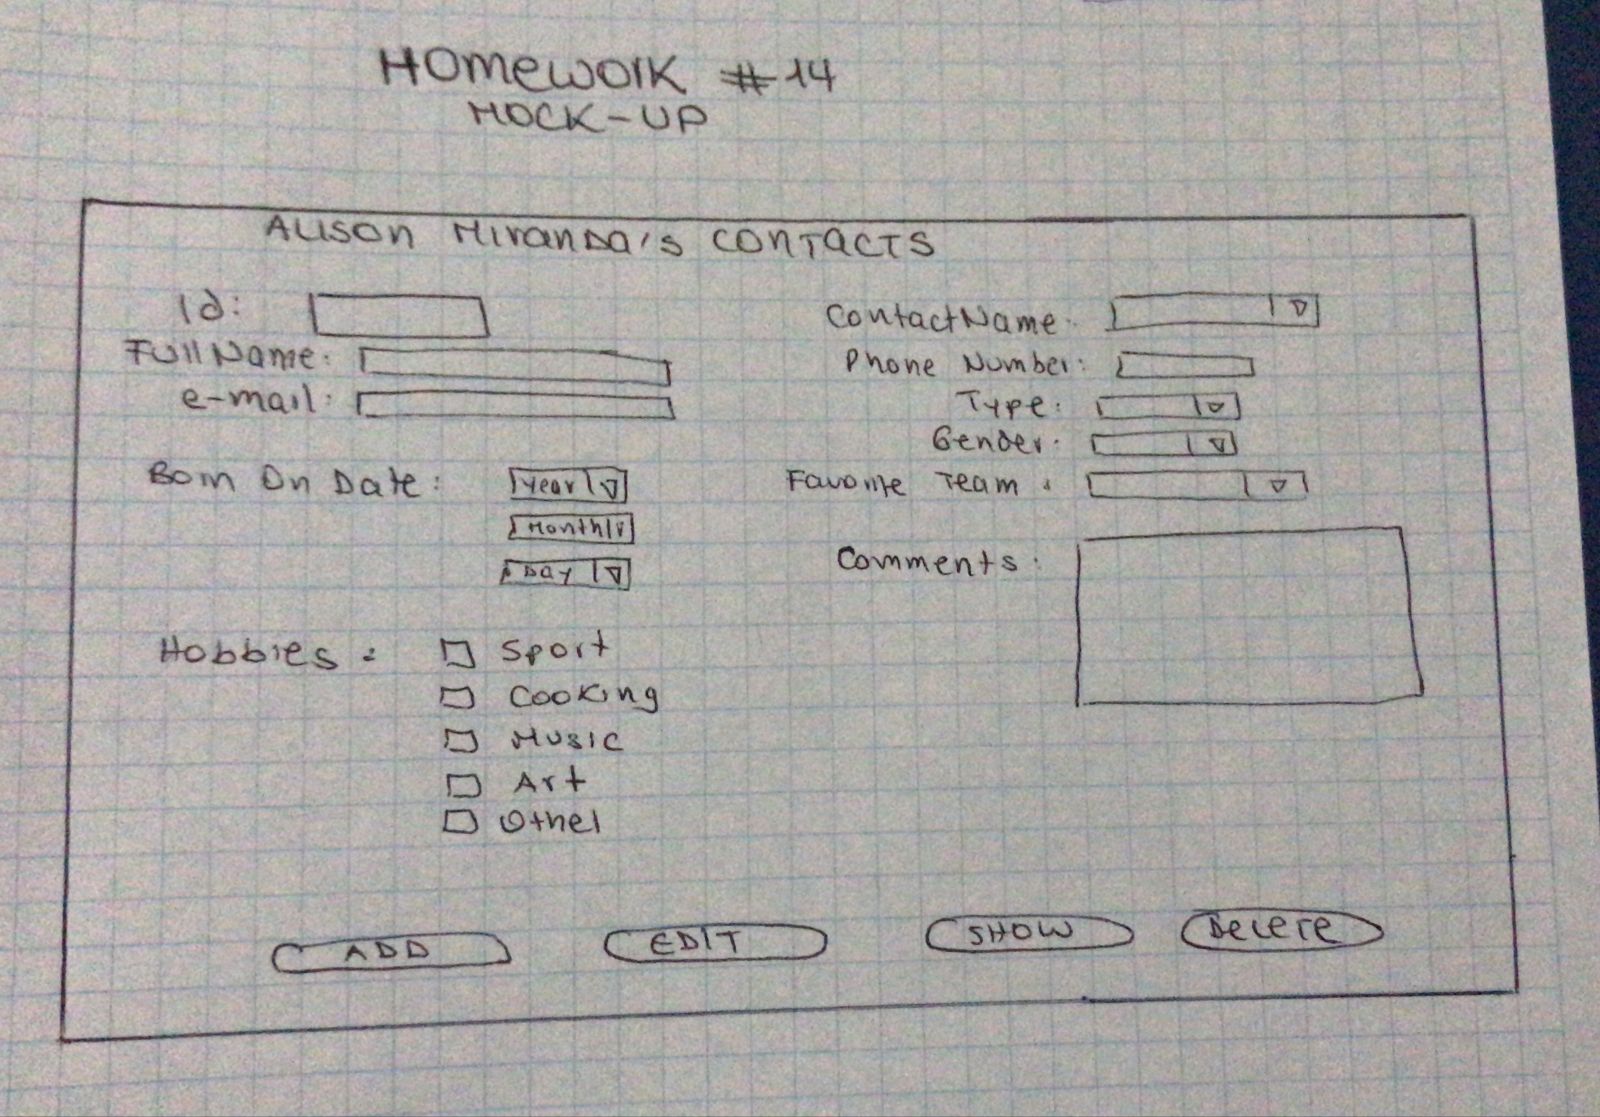 HOMEWORK #14
MOCK-UP
ALISON MIRANDA'S CONTACTS
Id:
Full Name:
e-mail:
Born On Date:
Year
Month
Day
Hobbies:
Sport
Cooking
Music
Art
Other
Contact Name:
Phone Number:
Type:
Gender:
Favorite Team:
Comments:
ADD
EDIT
SHOW
DELETE